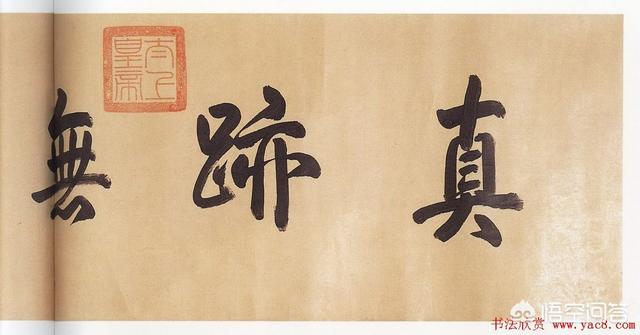 真跡無
太上皇帝
书法欣赏 www.yac8.com
悟空问答